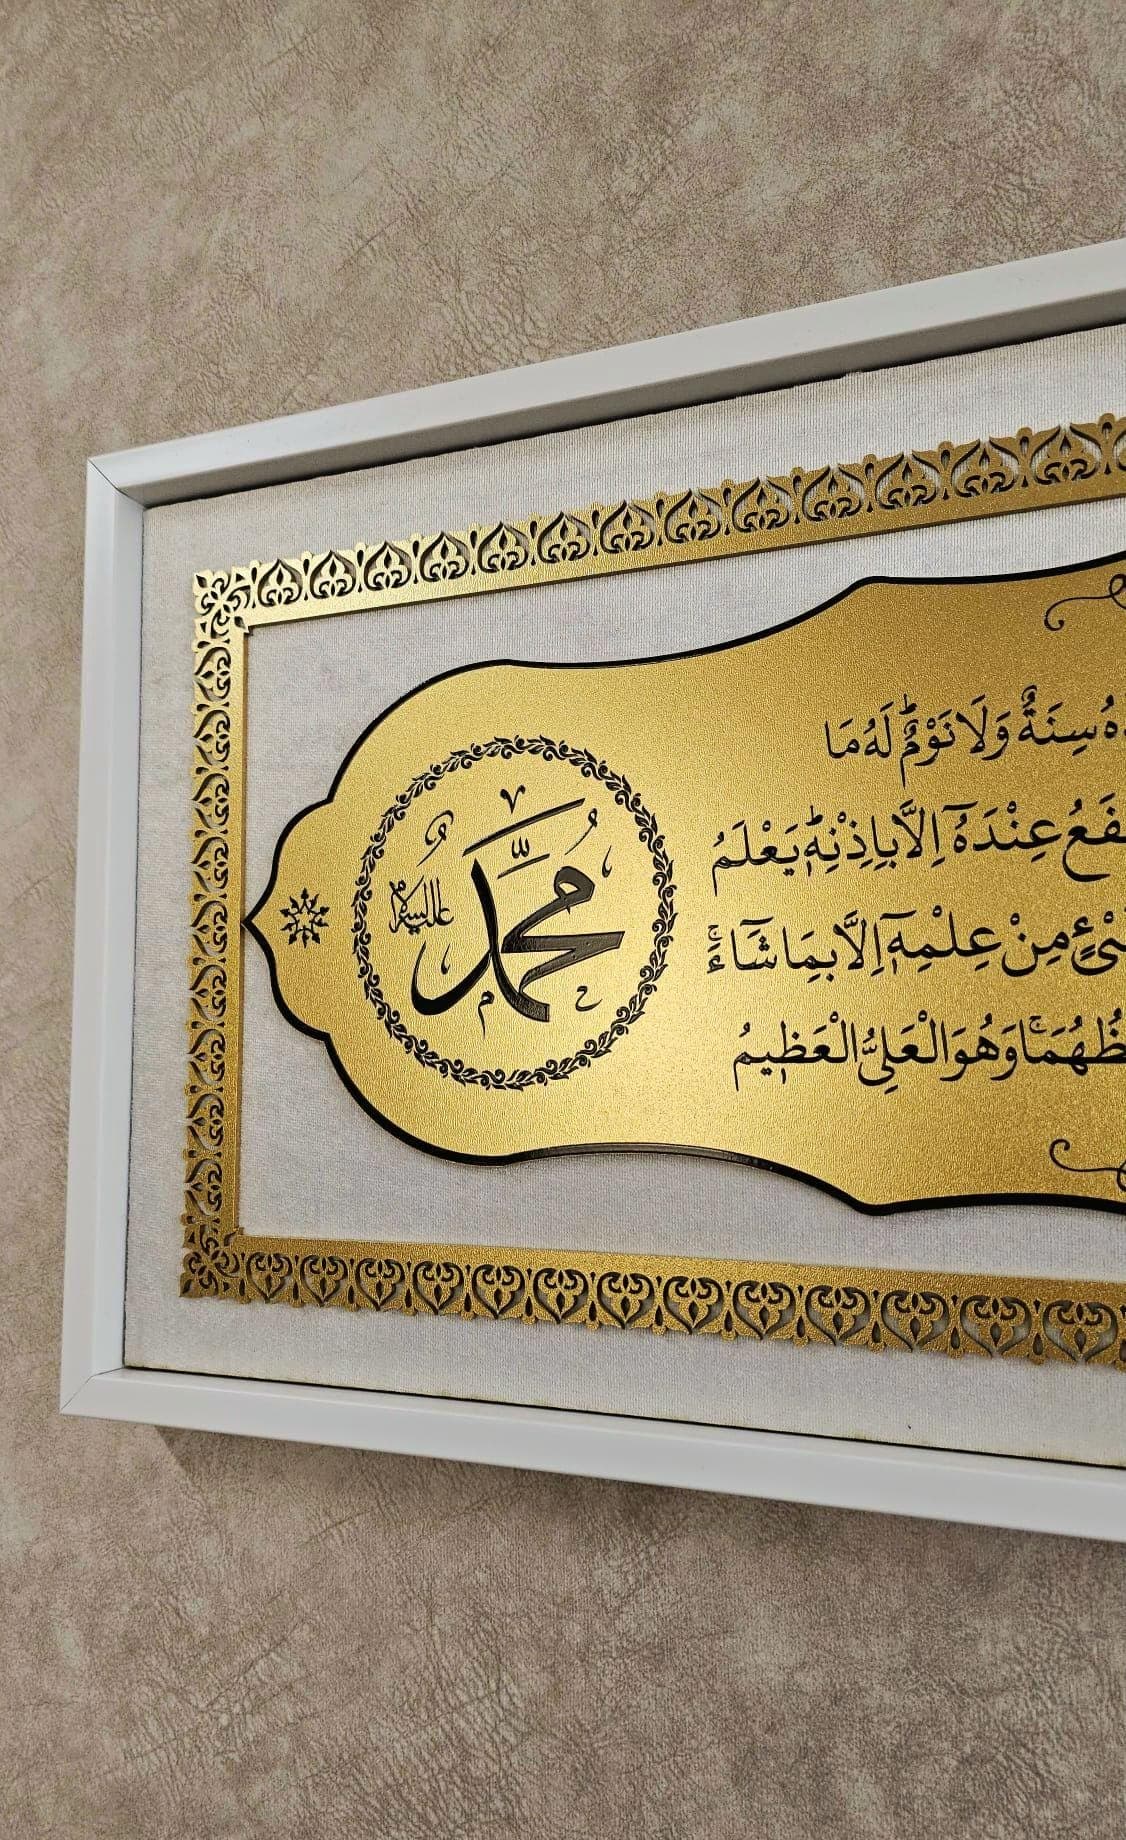 سِنَةٌ وَلَا نَوْمٌۜ لَهُ مَا
عِنْدَهُٓ اِلَّا بِاِذْنِه۪ۜ يَعْلَمُ
مِنْ عِلْمِه۪ٓ اِلَّا بِمَا شَٓاءَۚ
وَهُوَ الْعَلِيُّ الْعَظ۪يمُ
محمد
عليه السلام